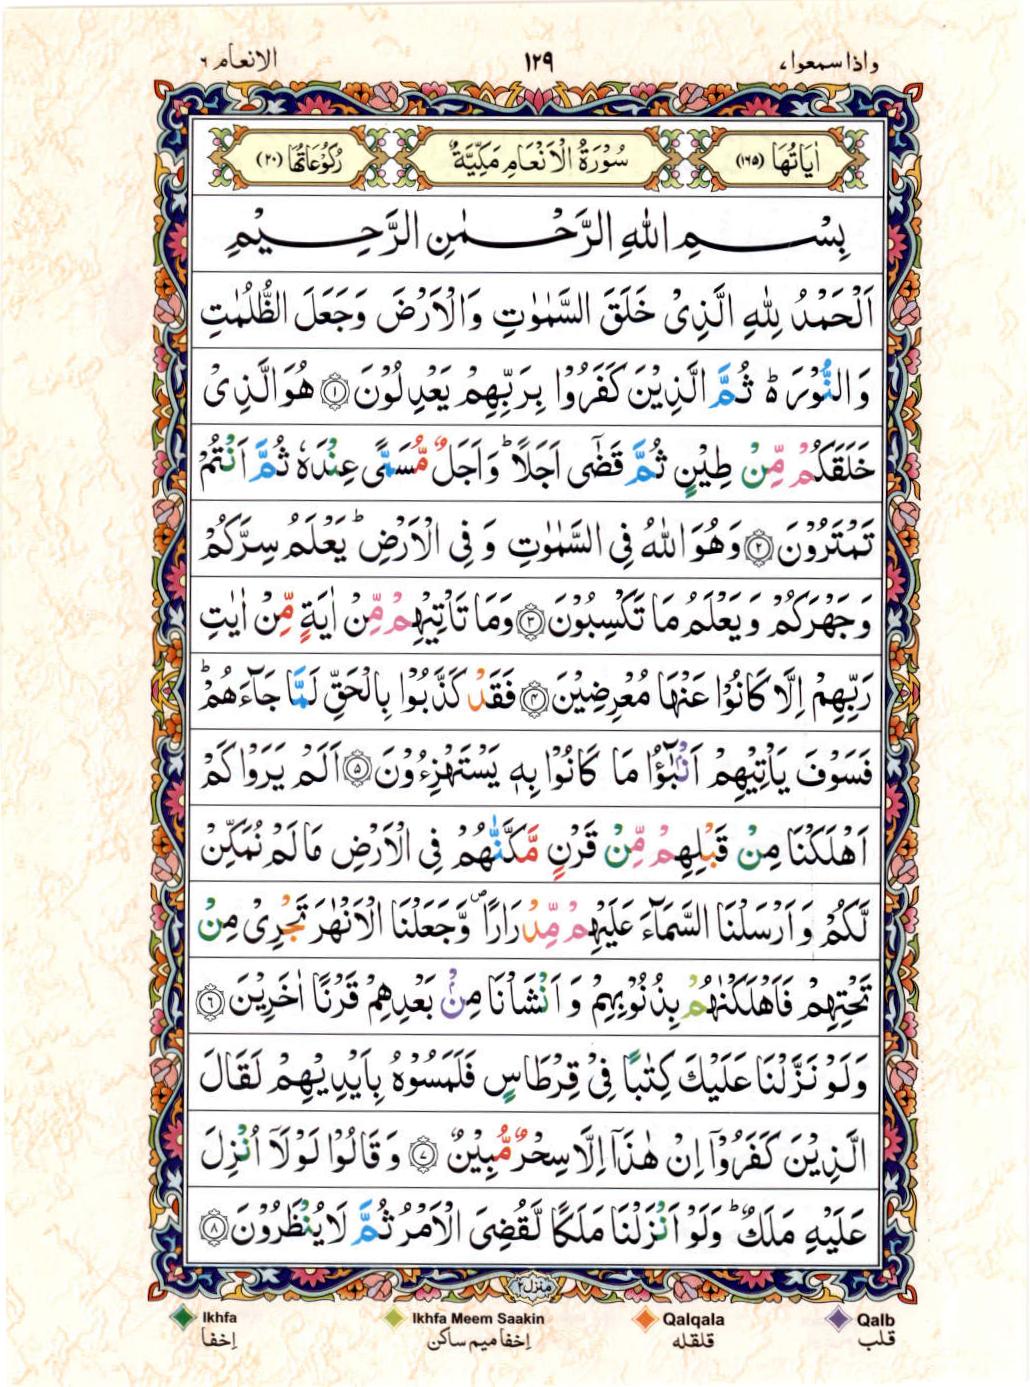 واذا سمعوا، ١٢٩ الانعام ٦
اٰيَاتُهَا (١٦٥) سُوْرَةُ الْاَنْعَامِ مَكِّيَّةٌ رُكُوْعَاتُهَا (٢٠)
بِسْمِ اللّٰهِ الرَّحْمٰنِ الرَّحِيْمِ
اَلْحَمْدُ لِلّٰهِ الَّذِىْ خَلَقَ السَّمٰوٰتِ وَالْاَرْضَ وَجَعَلَ الظُّلُمٰتِ
وَالنُّوْرَ ؕ ثُمَّ الَّذِيْنَ كَفَرُوْا بِرَبِّهِمْ يَعْدِلُوْنَ ۝١ هُوَ الَّذِىْ
خَلَقَكُمْ مِّنْ طِيْنٍ ثُمَّ قَضٰٓى اَجَلًا ؕ وَاَجَلٌ مُّسَمًّى عِنْدَهٗ ثُمَّ اَنْتُمْ
تَمْتَرُوْنَ ۝٢ وَهُوَ اللّٰهُ فِى السَّمٰوٰتِ وَ فِى الْاَرْضِ ؕ يَعْلَمُ سِرَّكُمْ
وَجَهْرَكُمْ وَيَعْلَمُ مَا تَكْسِبُوْنَ ۝٣ وَمَا تَاْتِيْهِمْ مِّنْ اٰيَةٍ مِّنْ اٰيٰتِ
رَبِّهِمْ اِلَّا كَانُوْا عَنْهَا مُعْرِضِيْنَ ۝٤ فَقَدْ كَذَّبُوْا بِالْحَقِّ لَمَّا جَآءَهُمْ ؕ
فَسَوْفَ يَاْتِيْهِمْ اَنْۢبٰٓؤُا مَا كَانُوْا بِهٖ يَسْتَهْزِءُوْنَ ۝٥ اَلَمْ يَرَوْا كَمْ
اَهْلَكْنَا مِنْ قَبْلِهِمْ مِّنْ قَرْنٍ مَّكَّنّٰهُمْ فِى الْاَرْضِ مَا لَمْ نُمَكِّنْ
لَّكُمْ وَاَرْسَلْنَا السَّمَآءَ عَلَيْهِمْ مِّدْرَارًا ۪ وَّجَعَلْنَا الْاَنْهٰرَ تَجْرِىْ مِنْ
تَحْتِهِمْ فَاَهْلَكْنٰهُمْ بِذُنُوْبِهِمْ وَاَنْشَاْنَا مِنْۢ بَعْدِهِمْ قَرْنًا اٰخَرِيْنَ ۝٦
وَلَوْ نَزَّلْنَا عَلَيْكَ كِتٰبًا فِىْ قِرْطَاسٍ فَلَمَسُوْهُ بِاَيْدِيْهِمْ لَقَالَ
الَّذِيْنَ كَفَرُوْٓا اِنْ هٰذَآ اِلَّا سِحْرٌ مُّبِيْنٌ ۝٧ وَقَالُوْا لَوْلَاۤ اُنْزِلَ
عَلَيْهِ مَلَكٌ ؕ وَلَوْ اَنْزَلْنَا مَلَكًا لَّقُضِىَ الْاَمْرُ ثُمَّ لَا يُنْظَرُوْنَ ۝٨
منزل ٢
Ikhfa Ikhfa Meem Saakin Qalqala Qalb
اِخفا اِخفا میم ساکن قلقله قلب